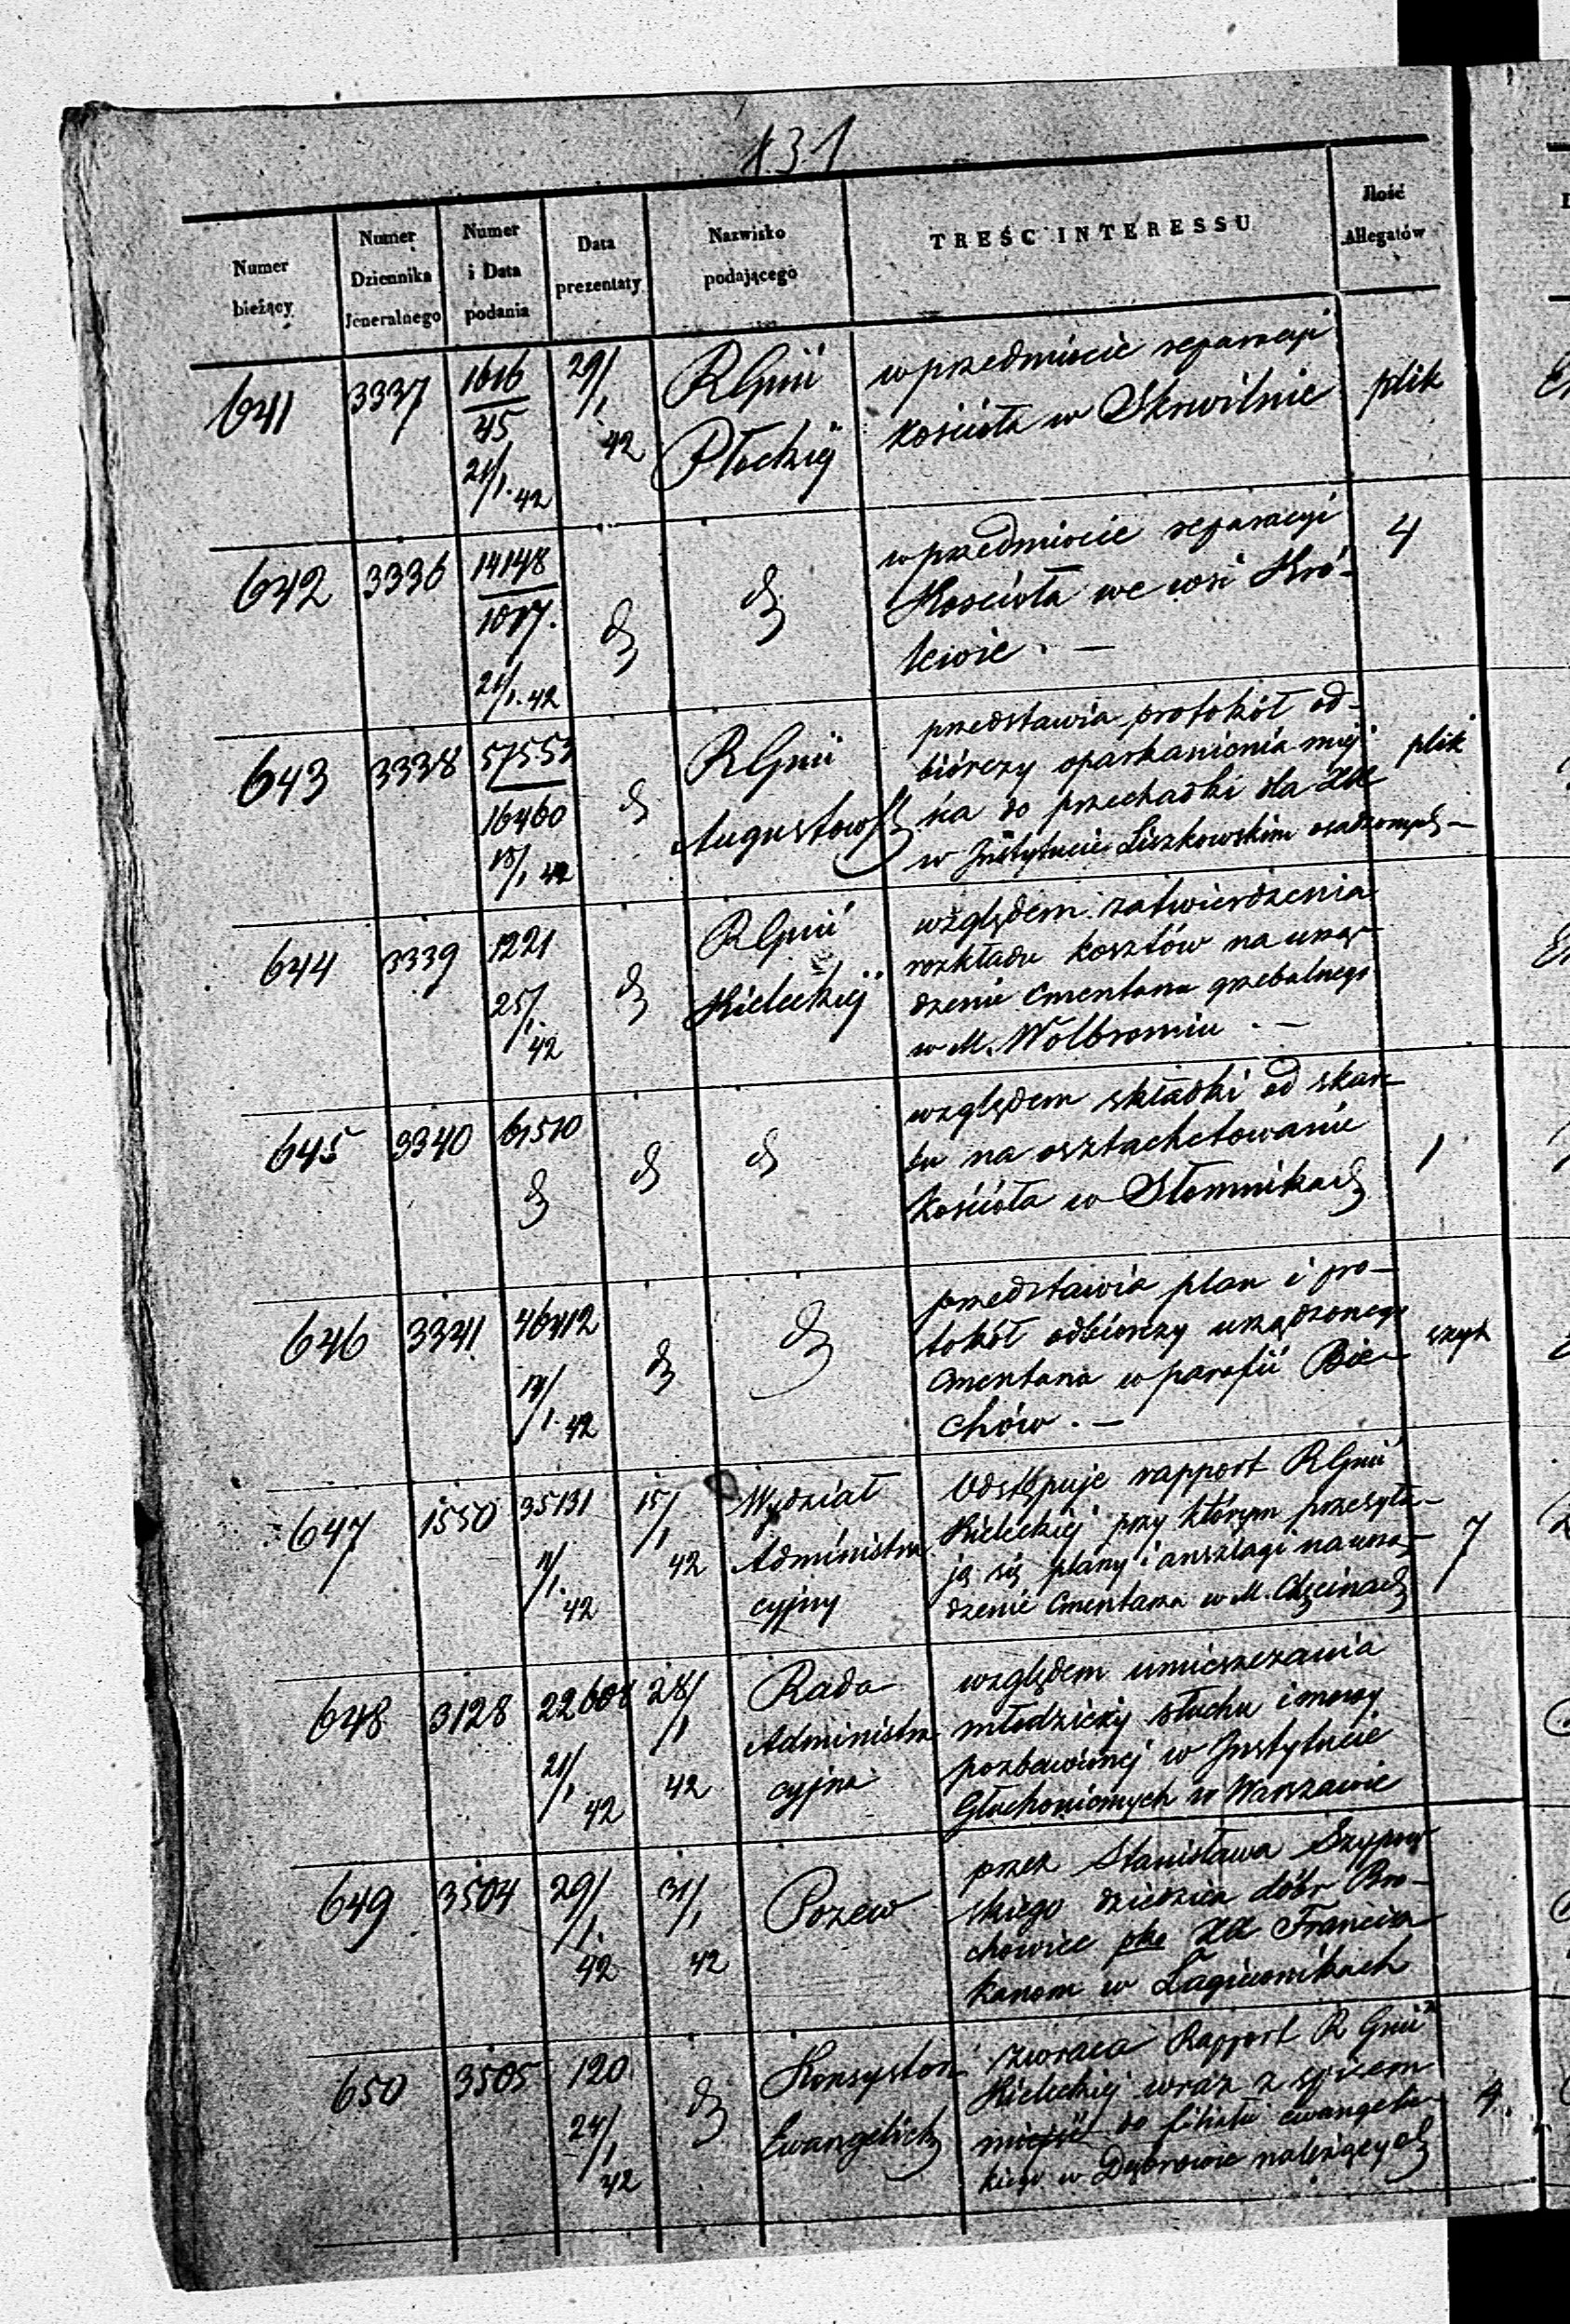 131
Numer bieżący
Numer Dziennika Jeneralnego
Numer i Data podania
Data prezentaty
Nazwisko podającego
TREŚĆ INTERESSU
Ilość Allegatów
641 3337 1616/45 21/1. 42 29/1 42 RGnii Płockiej
w przedmiocie reparacyi
kościoła w Skrwilnie
plik
642 3336 14148 21/1. 42
w przedmiocie reparacyi
Kościoła we wsi Kró-
lewie . —
4
643 3338 57553/16460 42 RGnii Augustows
przedstawia protokół od-
biórczy oparkanienia miej-
sca do przechadzki dla XX
w Instytucie Liszkowskim osadzonych —
plik
644 3339 1221 25/1. 42 RGnii Kieleckiej
względem zatwierdzenia
rozkładu kosztów na urzą-
dzenie Cmentarza grzebalnego
w M. Wolbromiu . —
645 3340 61510
względem składki od skar-
bu na osztachetowanie
Kościoła w Słomnikach
1
646 3341 46412 42
przedstawia plan i pro-
tokół odbiorczy urządzonego
Cmentarza w parafii Bie-
chów . —
szyt
647 1550 35131 42 15/1 42 Wydział Administra cyjny
Odstępuje rapport RGnii
Kieleckiej przy którym przesyła-
ją się plany i anszlagi na urzą-
dzenie Cmentarza w M. Chęcinach
7
648 3128 21/1 42 28/1 42 Rada Administra cyjna
względem umieszczania
młodzieży słuchu i mowy
pozbawionej w Instytucie
Głuchoniemych w Warszawie
649 3504 29/1. 42 31/1 42 Pozew
przez Stanisława
skiego dziedzica dóbr Bro-
chowice pko XX Francisz
kanom w Łagiewnikach
650 3505 120 24/1 42 Konsystorz Ewangelick
zwraca Rapport R Gnii
Kieleckiej wraz z spisem
miejsc do filiału ewangelic-
kiego w Dąbrowie należących
4.